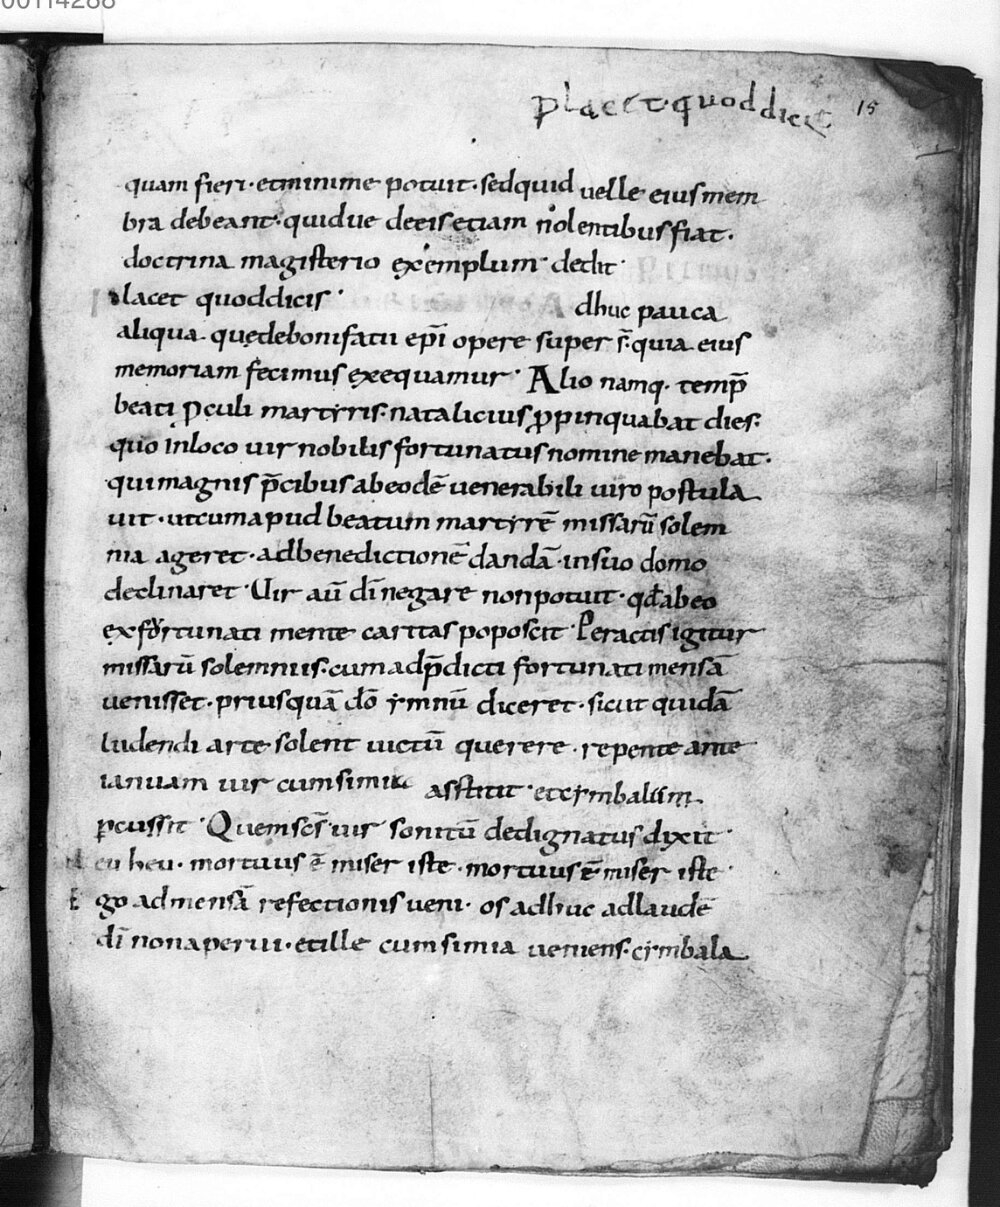 00114288
placet· quod dicis
15
quam fieri· et minime potuit· sed quid uelle eius mem
bra debeant· quidue de eis etiam nolentibus fiat·
doctrina magisterio exemplum dedit·
placet quod dicis· Adhuc pauca
aliqua quę de bonifatii ep̄i opere super s̄· quia eius
memoriam fecimus exequamur· Alio namq· temp̄
beati ꝓculi martyris· natalicius ꝓpinquabat dies·
quo inloco uir nobilis fortunatus nomine manebat·
qui magnis p̄cibus ab eodē uenerabili uiro postula
uit· ut cum apud beatum martyrē missarū solem
nia ageret· ad benedictionē dandā· in suo domo
declinaret· Uir aū dī negare non potuit· qđ ab eo
ex fortunati mente caritas poposcit· Peractis igitur
missarū solemniis· cum ad p̄dicti fortunati mensā
uenisset· priusquā dō ymnū diceret· sicut quidā
ludendi arte solent uictū querere· repente ante
ianuam uir cum simia asstitit· et cymbalis
ꝑcussit· Quem sc̄s uir sonitū dedignatus dixit·
eu heu· mortuus ē miser iste· mortuus ē miser iste·
Ego ad mensā refectionis ueni· os adhuc ad laudē
dī non aperui· et ille cum simia ueniens· cymbala